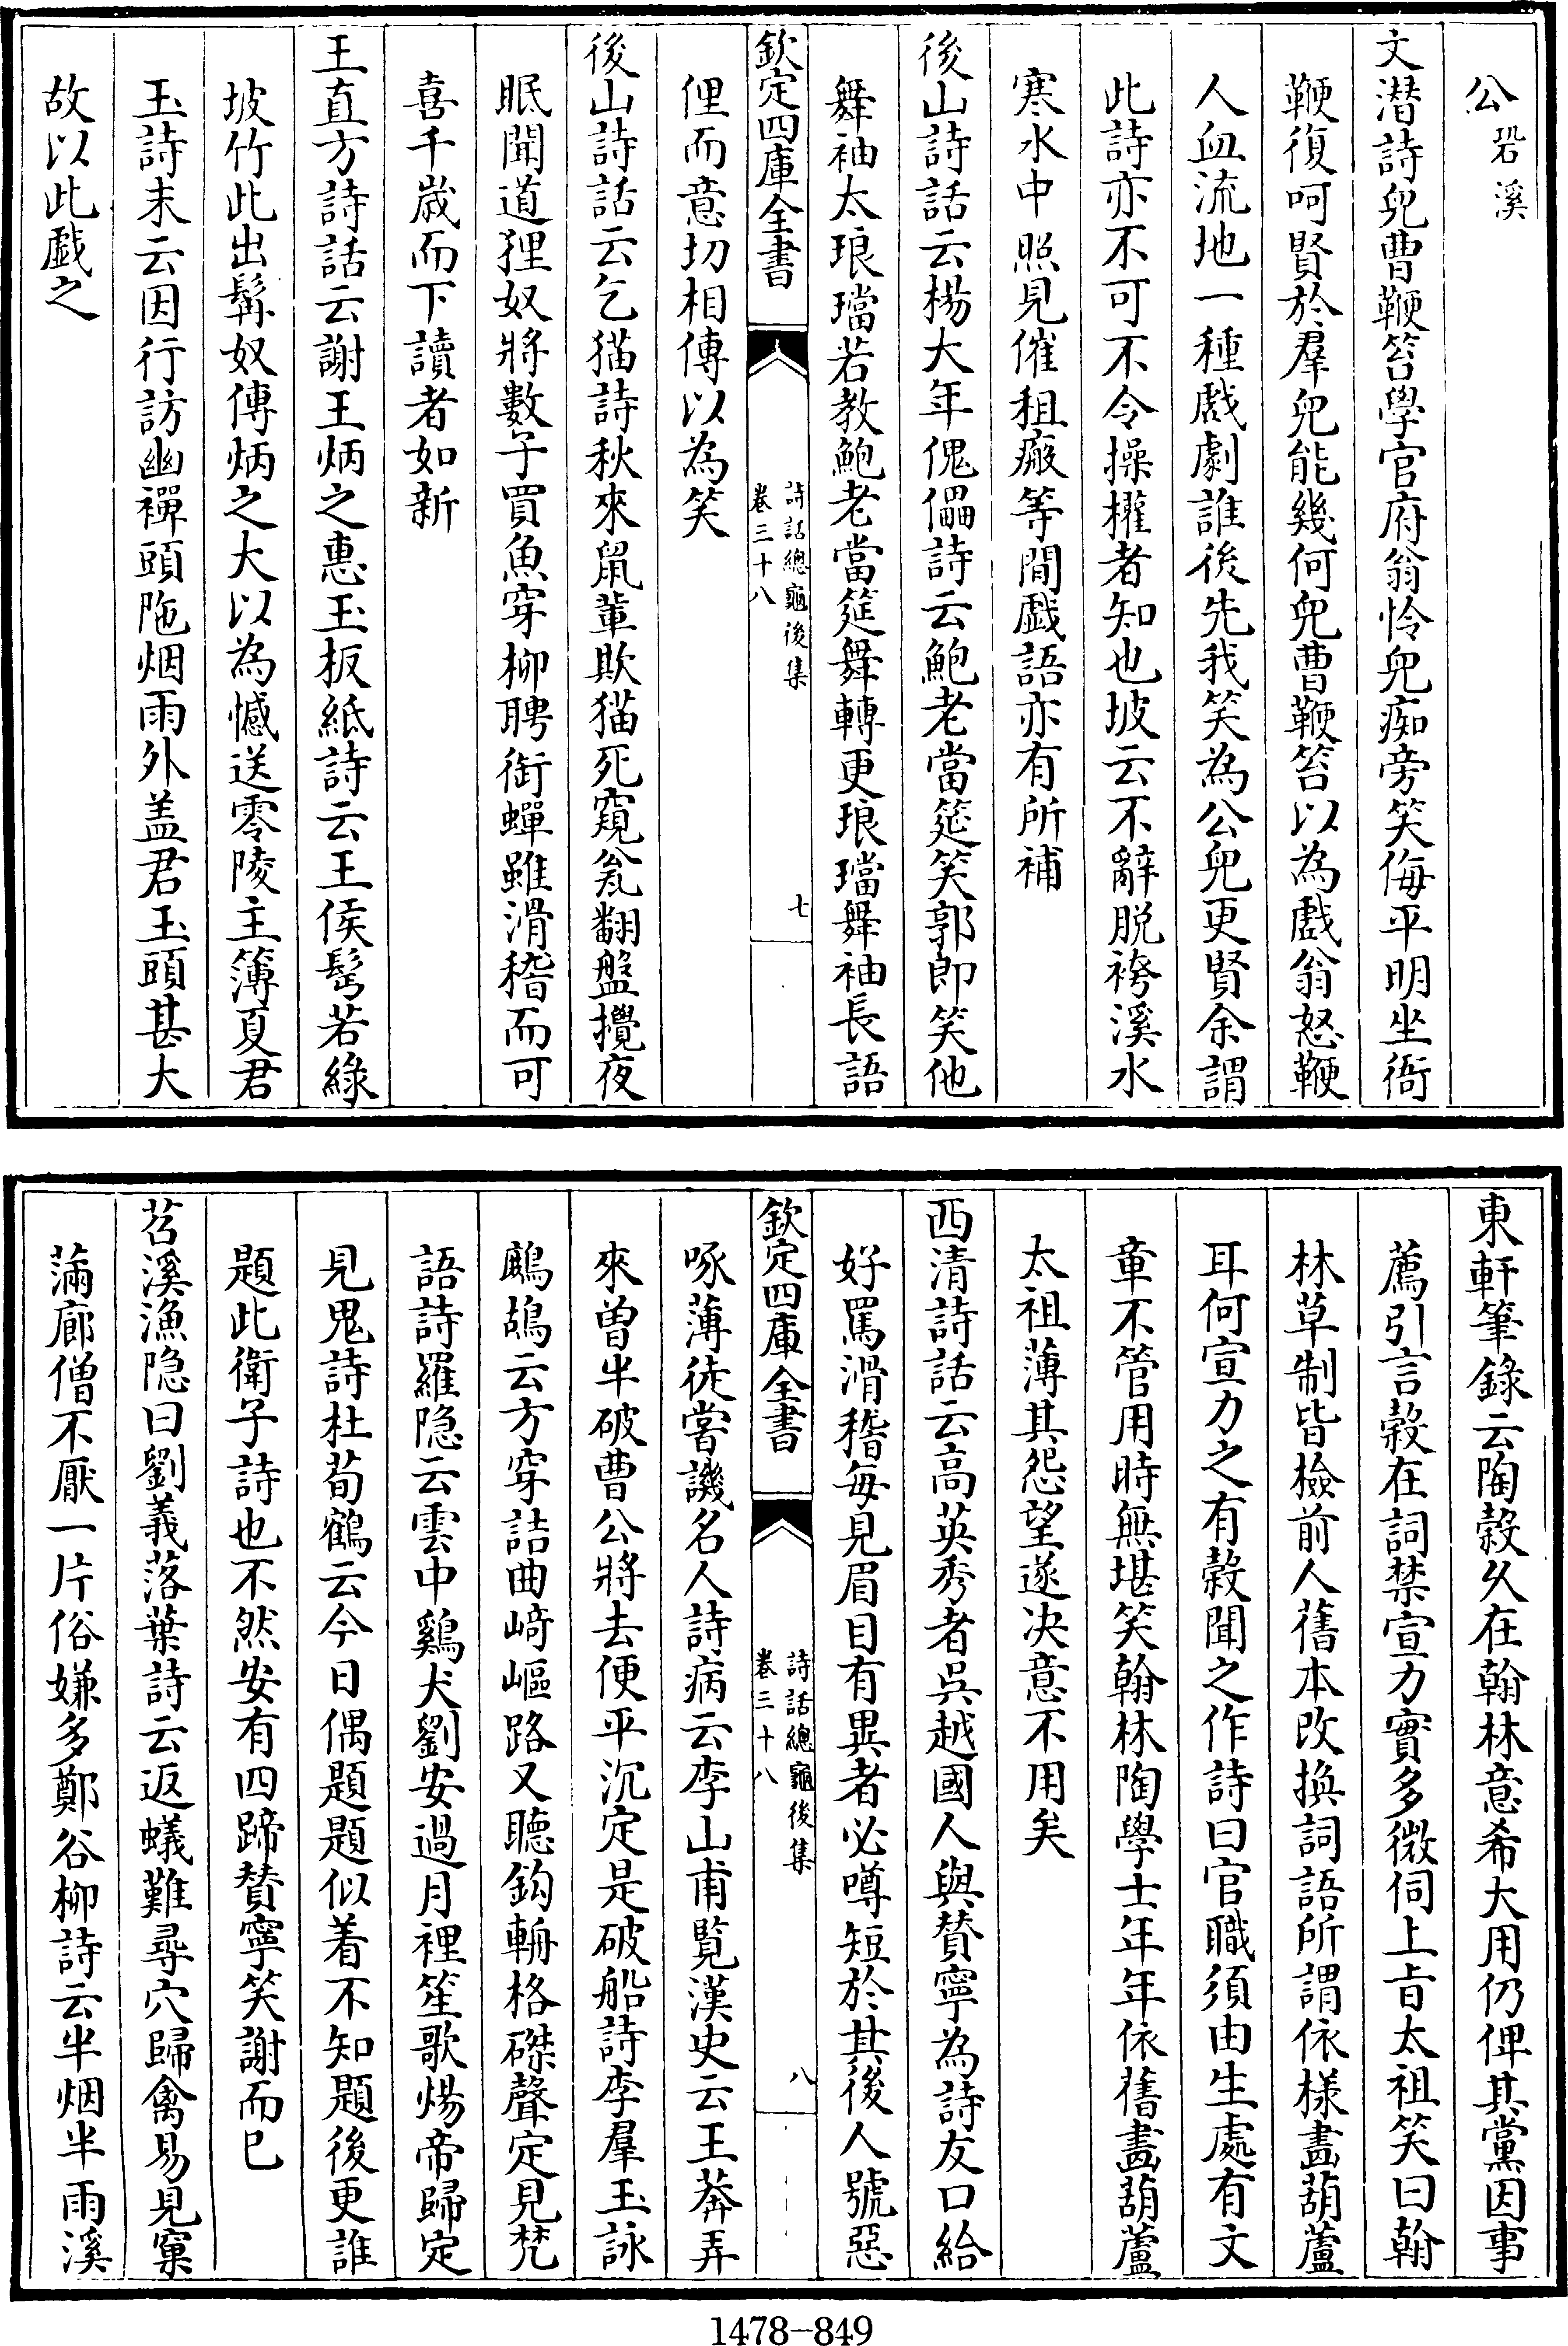 公 䂬溪
文潛詩兒曹鞭笞學官府翁怜兒痴旁笑侮平明坐衙
鞭復呵賢於羣兒能幾何兒曹鞭笞以為戲翁怒鞭
人血流地一種戲劇誰後先我笑為公兒更賢余謂
此詩亦不可不令操權者知也坡云不辭脱袴溪水
寒水中照見催租瘢等閒戯語亦有所補
後山詩話云楊大年傀儡詩云鮑老當筵笑郭郎笑他
舞袖太琅璫若教鮑老當筵舞轉更琅璫舞袖長語
欽定四庫全書
詩話總龜後集
卷三十八
七
俚而意切相傳以為笑
後山詩話云乞猫詩秋來鼠輩欺猫死窺瓮翻盤攪夜
眠聞道狸奴將數子買魚穿柳聘銜蟬雖滑稽而可
喜千歳而下讀者如新
王直方詩話云謝王炳之惠玉板紙詩云王侯髩若緑
坡竹此出髯奴傳炳之大以為憾送零陵主簿夏君
玉詩末云因行訪幽禪頭陁烟雨外盖君玉頭甚大
故以此戯之
東軒筆錄云陶榖乆在翰林意希大用仍俾其黨因事
薦引言榖在詞禁宣力實多微伺上旨太祖笑曰翰
林草制皆檢前人舊本改換詞語所謂依樣畫葫蘆
耳何宣力之有榖聞之作詩曰官職須由生處有文
章不管用時無堪笑翰林陶學士年年依舊畫葫蘆
太祖薄其怨望遂决意不用矣
西清詩話云高英秀者吳越國人與贊寧為詩友口給
好罵滑稽每見眉目有異者必噂短於其後人號惡
欽定四庫全書
詩話總龜後集
卷三十八
八
喙薄徒嘗譏名人詩病云李山甫覽漢史云王莽弄
來曽半破曹公將去便平沉定是破船詩李羣玉詠
鷓鴣云方穿詰曲﨑嶇路又聽鈎輈格磔聲定見梵
語詩羅隐云雲中鷄犬劉安過月裡笙歌煬帝歸定
見鬼詩杜荀鶴云今日偶題題似着不知題後更誰
題此衛子詩也不然安有四蹄贊寧笑謝而已
苕溪漁隐曰劉義落葉詩云返蟻難尋穴歸禽易見窠
滿廊僧不厭一片俗嫌多鄭谷柳詩云半烟半雨溪
1478-849